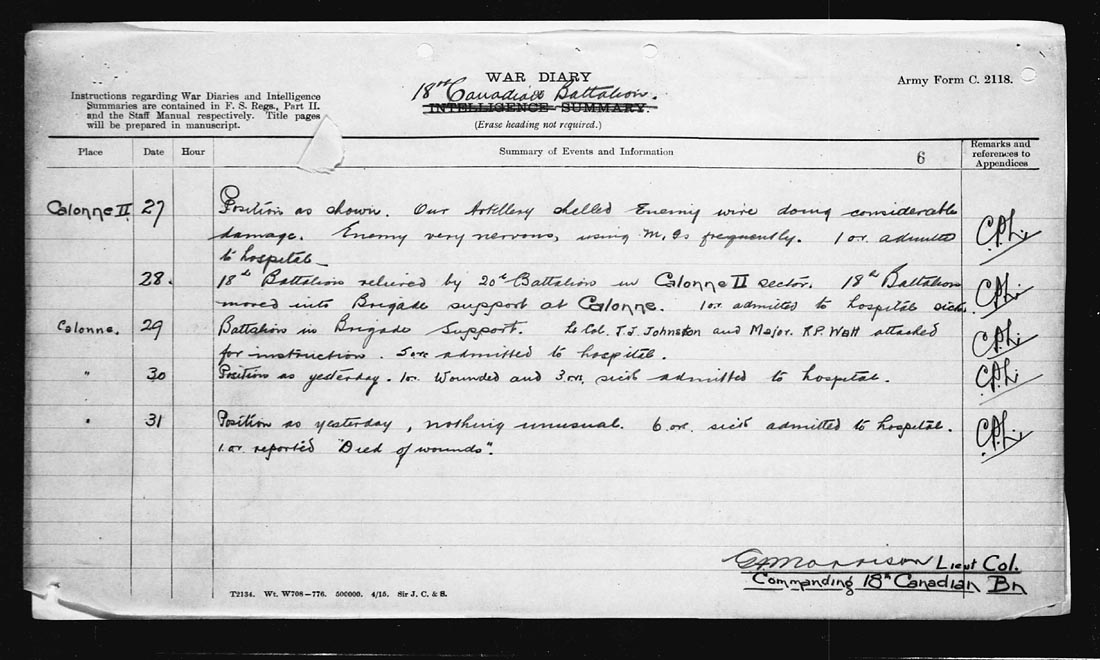 WAR DIARY
18th Canadian Battalion.
INTELLIGENCE SUMMARY.
(Erase heading not required.)
Army Form C. 2118.
Instructions regarding War Diaries and Intelligence
Summaries are contained in F. S. Regs., Part II.
and the Staff Manual respectively. Title pages
will be prepared in manuscript.
Place Date Hour Summary of Events and Information 6 Remarks and
references to
Appendices
Calonne II 27 Position as shown. Our Artillery shelled Enemy wire doing considerable
damage. Enemy very nervous, using M.Gs frequently. 1 o.r. admitted
to hospital
28. 18th Battalion relieved by 20th Battalion in Calonne II sector. 18th Battalion
moved into Brigade support at Calonne. 1 o.r. admitted to hospital sick.
Calonne. 29 Battalion in Brigade Support. Lt Col. T.J. Johnston and Major. R.P. Watt attached
for instruction. 5 o.r. admitted to hospital.
" 30 Position as yesterday. 1 o.r. Wounded and 3 o.r. sick admitted to hospital.
" 31 Position as yesterday, nothing unusual. 6 o.r. sick admitted to hospital.
1 o.r. reported "Died of wounds".
Morrison Lieut Col.
Commanding 18th Canadian Bn
T2134. Wt. W708—776. 500000. 4/15. Sir J. C. & S.